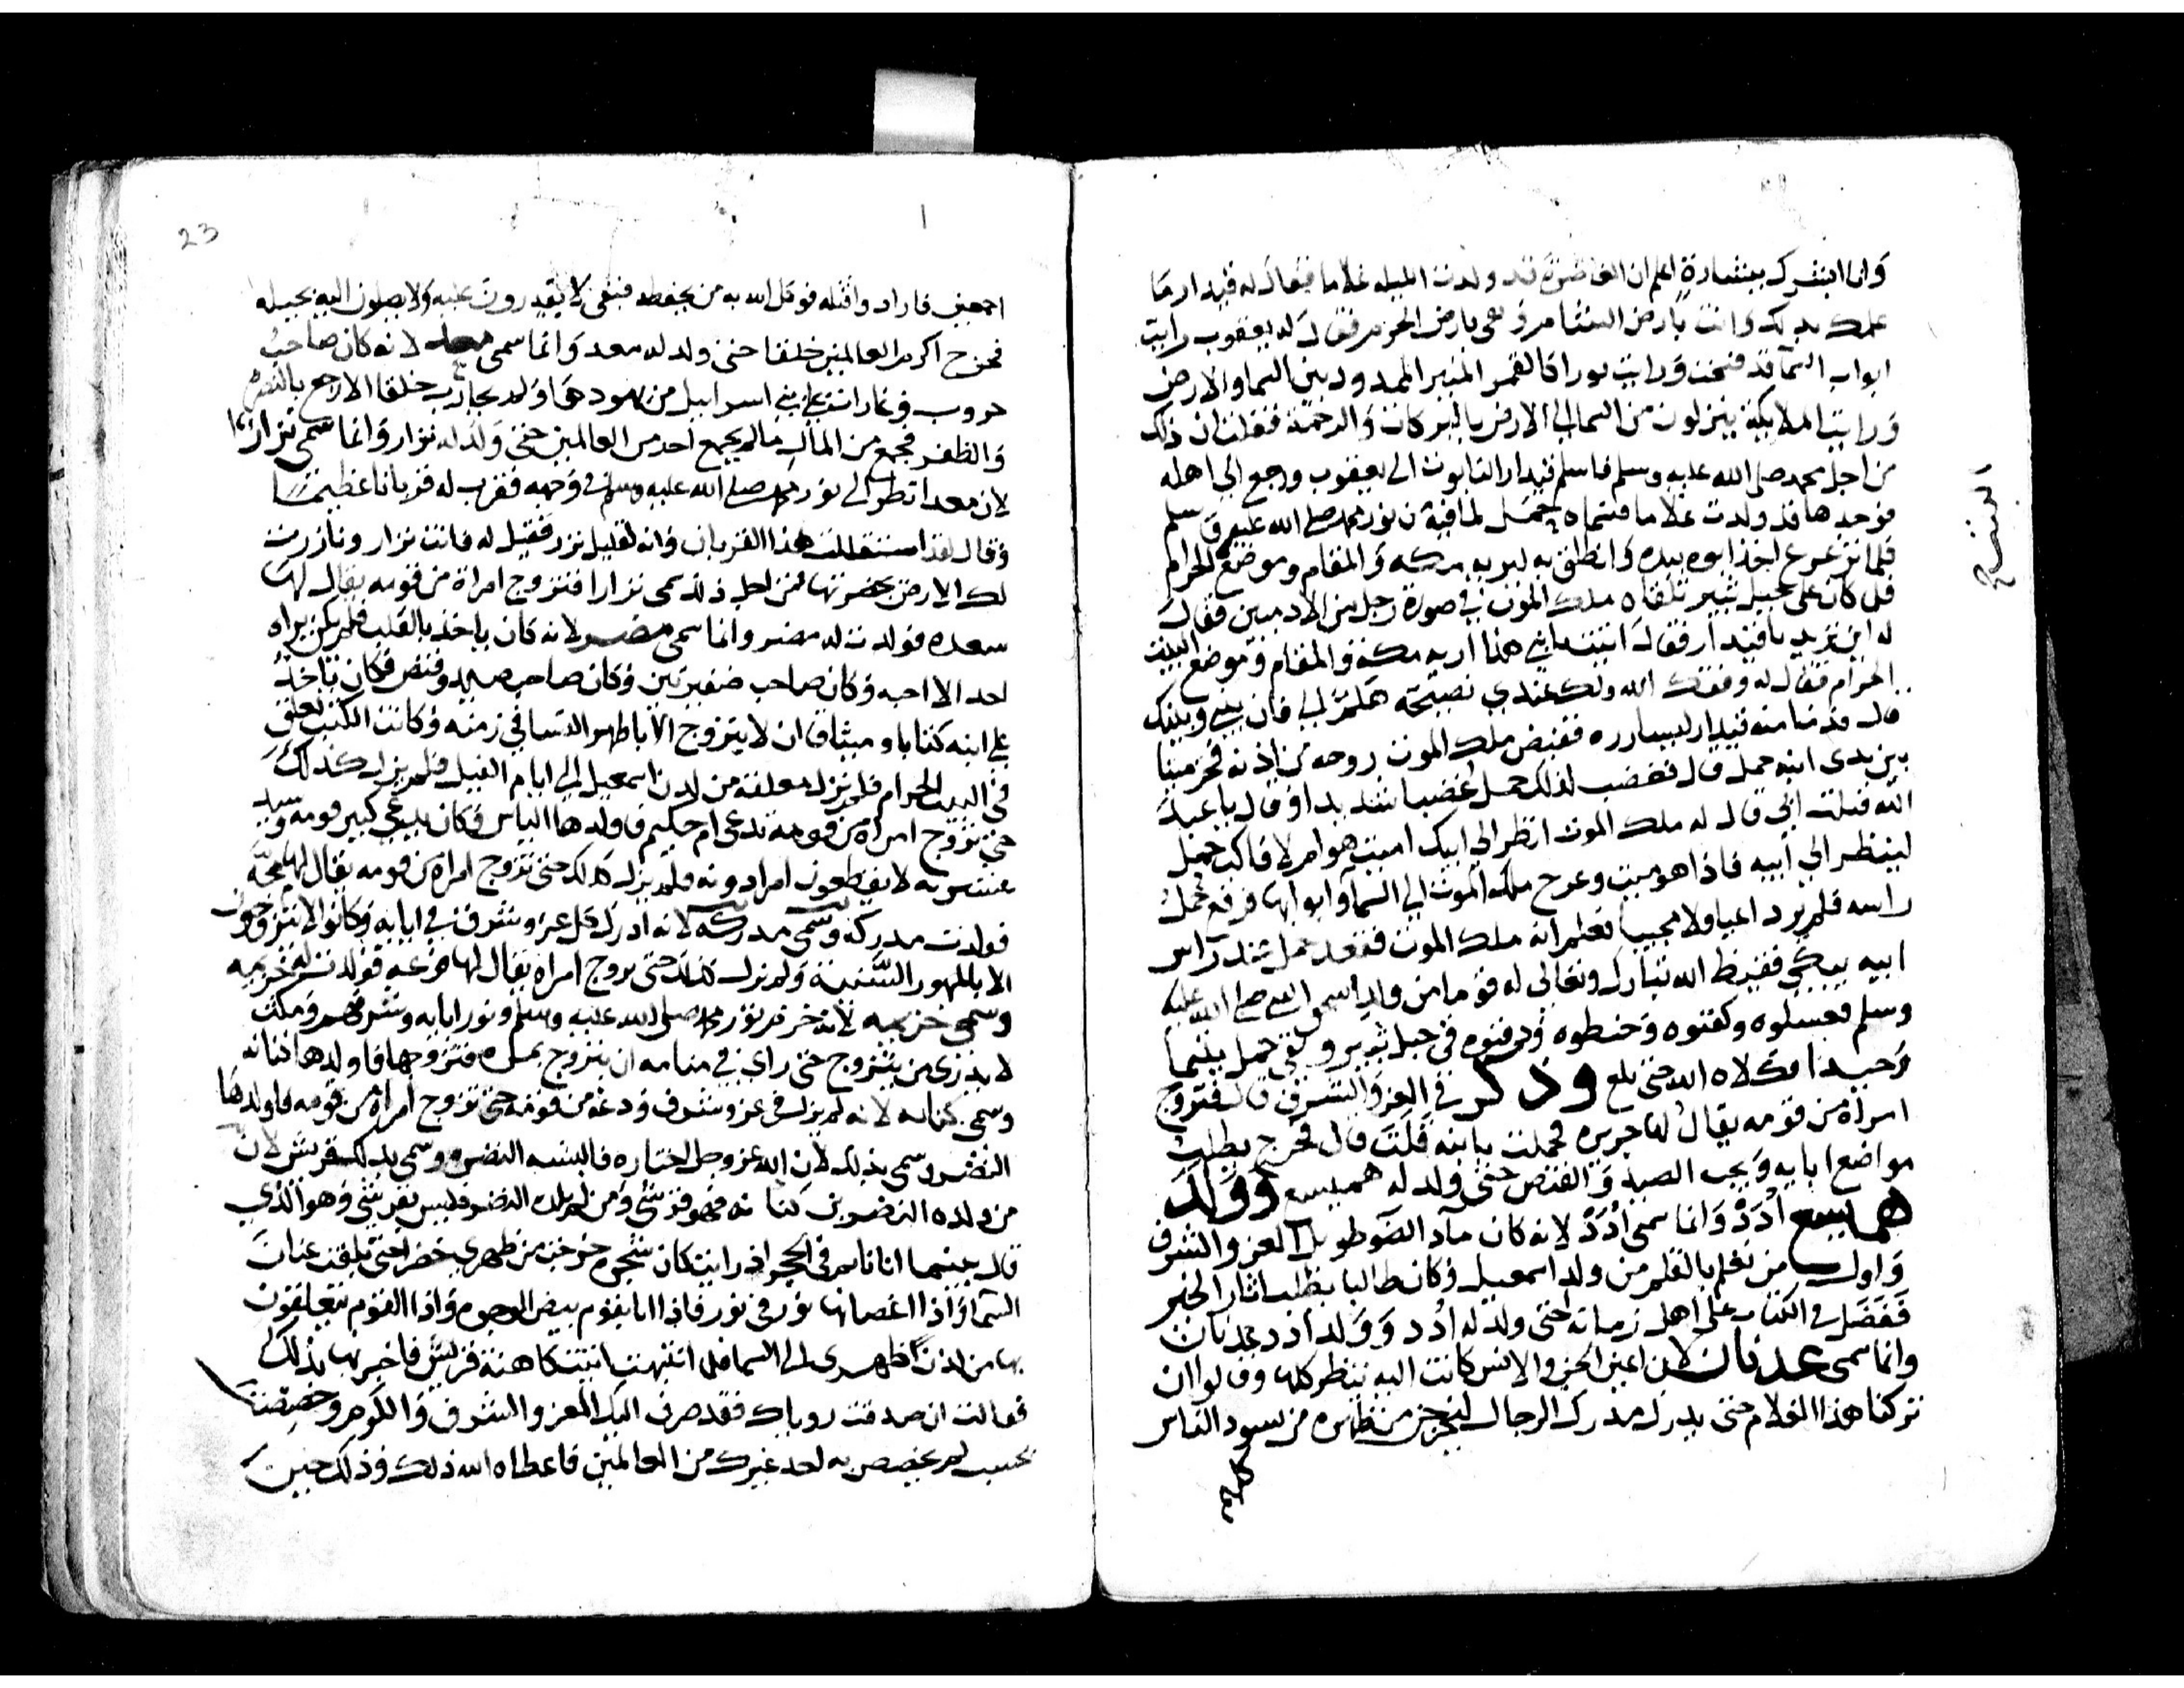 وانا ابشرك ببشارة اعلم ان الغاضرة قد ولدت الليله غلاما فقال له قيدار ما
علمك بذلك وانت بارض الشام وهي بارض الحرم فقال له يعقوب رايت
ابواب السما قد فتحت ورايت نورا كالقمر المنير الممدود بين السما والارض
ورايت الملايكة ينزلون من السما الي الارض بالبركات والرحمة فعلمت ان ذلك
من اجل محمد صلى الله عليه وسلم فاسلم قيدار التابوت الى يعقوب ورجع الي اهله
فوجدها قد ولدت غلاما فسماه حمل لما فيه من نور محمد صلى الله عليه وسلم
فلما ترعرع اخذ ابوه بيده وانطلق به ليريه مكه والمقام وموضع الحرام
فلما كان على جبل ثبير تلقاه ملك الموت في صورة رجل من الادميين فقال
له اين تريد يا قيدار فقال انيت بابني هذا اريه مكة والمقام وموضع البيت
الحرام فقال له وفقك الله ولك عندي نصيحة هلم الي فان بيني وبينك
قال فدنا منه قيدار ليسارره فقبض ملك الموت روحه من اذنه فخر ميتا
بين يدى ابنه حمل قال فغضب لذلك حمل غضبا شديدا وقال يا عبد
الله قتلت ابي قال له ملك الموت انظر الي ابيك اميت هو ام لا فاكب حمل
لينظر الي ابيه فاذا هو ميت وعرج ملك الموت الي السما وابوابها فرفع حمل
راسه فلم ير داعيا ولا مجيبا فعلم انه ملك الموت فقعد حمل عند راس
ابيه يبكي فقيظ الله تبارك وتعالى له قوما من ولد اسحق النبي صلى الله عليه
وسلم فغسلوه وكفنوه وحنطوه ودفنوه في جبل ثبير وبقي حمل يتيما
وحيدا فكلاه الله حتى بلغ وذكر في العز والشرف قال فتزوج
امراة من قومه يقال لها حريره فحملت بابنه قال فخرج يطلب
مواضع ابايه ويحب الصيد والقنص حتى ولد له هميسع وولد
هميسع ادد وانما سمى ادد لانه كان ماد الصوت طويل العز والشرف
واول من تعلم بالقلم من ولد اسمعيل وكان طالبا يطلب اثار الخير
ففضل في الكتاب على اهل زمانه حتى ولد له ادد وولد ادد عدنان
وانما سمى عدنان لان اعين الجن والانس كانت اليه تنظر كلها وقالوا ان
تركنا هذا الغلام حتى يدرك مدرك الرجال ليخرجن من ظهره من يسود الناس
كلهم
23
اجمعين فارادوا قتله فوكل الله به من يحفظه فبقى لا يقدرون عليه ولا يصلون اليه بحيله
فخرج اكرم العالمين خلقا حتى ولد له معد وانما سمى معد لانه كان صاحب
حروب وغارات على بني اسراييل من يهودها ولم يحارب خلقا الا رجع بالنصر
والظفر فجمع من المال ما لم يجمع احد من العالمين حتى ولد له نزار وانما سمى نزارا
لان معدا نظر الى نور محمد صلى الله عليه وسلم في وجهه فقرب له قربانا عظيما
وقال لقد استقللت هذا القربان وانه لقليل نزر فقيل له فانت نزار
لك الارض بحضرتها فمن اجل ذلك سمى نزارا فتزوج امراة من قومه يقال لها
سعده فولدت له مضر وانما سمى مضر لانه كان ياخذ بالقلب فلم يكن يراه
احد الا احبه وكان صاحب ضفيرتين وكان صاحب صيد وقنص فكان ياخذ
على ابنه كتابا وميثاق ان لا يتزوج الا باطهر النسا في زمنه وكانت الكتب تعلق
في البيت الحرام فلم تزل معلقة من لدن اسمعيل الى ايام الفيل فلم يزل كذلك
حتى تزوج امراة من قومه تدعى ام حكيم فاولدها الياس فكان يدعي كبير قومه وسيد
عشيرته لا يقطعون امرا دونه فلم يزل كذلك حتى تزوج امراة من قومه يقال لها
فولدت مدركه وسمى مدركه لانه ادرك كل عز وشرف في ابايه وكانوا لا يتزوجون
الا بالمهور السنية ولم يزل كذلك حتى تزوج امراة يقال لها فولدت له خزيمه
وسمى خزيمه لانه خزم نور محمد صلى الله عليه وسلم ونور ابايه وشرفهم ومكث
لا يدري من يتزوج حتى راى في منامه ان يتزوج بمره فتزوجها فاولدها كنانه
وسمى كنانه لانه لم يزل في عز وشرف ودعة من قومه حتى تزوج امراة من قومه فاولدها
النضر وسمى بذلك لان الله عز وجل اختاره فالبسه النضرة وسمى بذلك قريش لان
من ولده النضر بن كنانه فهو قرشي ومن لم يلده النضر فليس بقرشي وهو الذي
قال بينما انا نايم في الحجر اذ رايت كان شجره خرجت من ظهري خضرا حتى بلغت عنان
السما واذا اغصانها نور في نور فاذا انا بقوم بيض الوجوه واذا القوم متعلقون
بها من لدن ظهرى الى السما فلما انتبهت اتيت كاهنة قريش فاخبرتها بذلك
فقالت ان صدقت روياك فقد صرف اليك العز والشرف والكرم وخصصت
بحسب لم يخصص به احد غيرك من العالمين فاعطاه الله ذلك وذلك حين